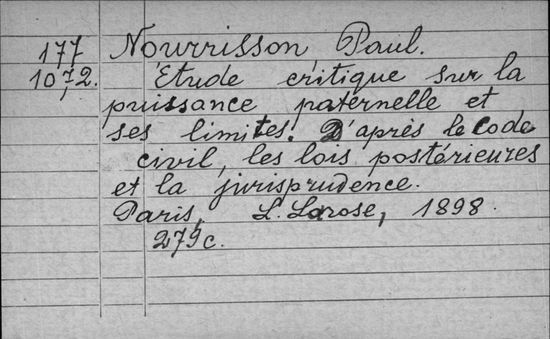 177 Nourrisson Paul.
10,72. Étude critique sur la
puissance paternelle et
ses limites. D'après le Code
civil, les lois postérieures
et la jurisprudence.
Paris, L. Larose, 1898.
279c.